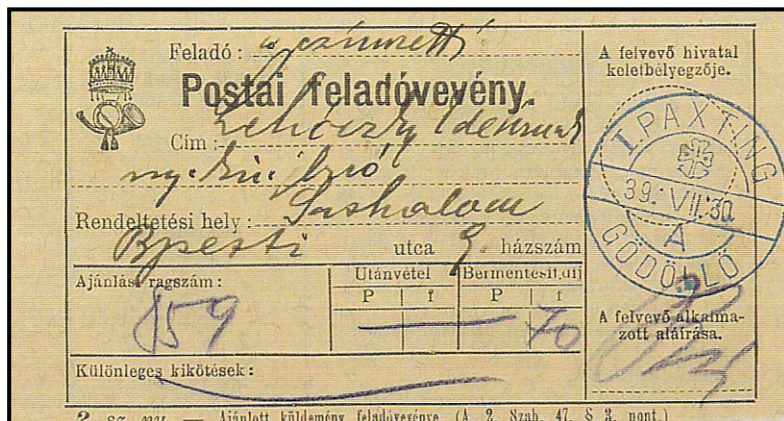 Feladó:
Postai feladóvevény.
Cím:
Rendeltetési hely: Sashalom
Bpesti utca 9. házszám
Ajánlási ragszám:
859
Utánvétel
P f
Bermentesít. díj
P f
70
Különleges kikötések:
A felvevő hivatal
keletbélyegzője.
I. PAXTING
39. VII. 30
A
GÖDÖLLŐ
A felvevő alkalma-
zott aláírása.
2. sz. ny. — Ajánlott küldemény feladóvevénye (A. 2. Szab. 47. § 3. pont.)